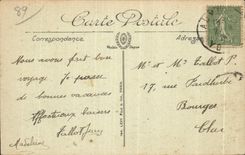 89
Carte Postale
Correspondance
Adresse
Nous avons fait bon
voyage Je passe
de bonnes vacances
Affectueux baisers
Madeleine
Mr et Me Talbot P.
17, rue Faidherbe
Bourges
Cher